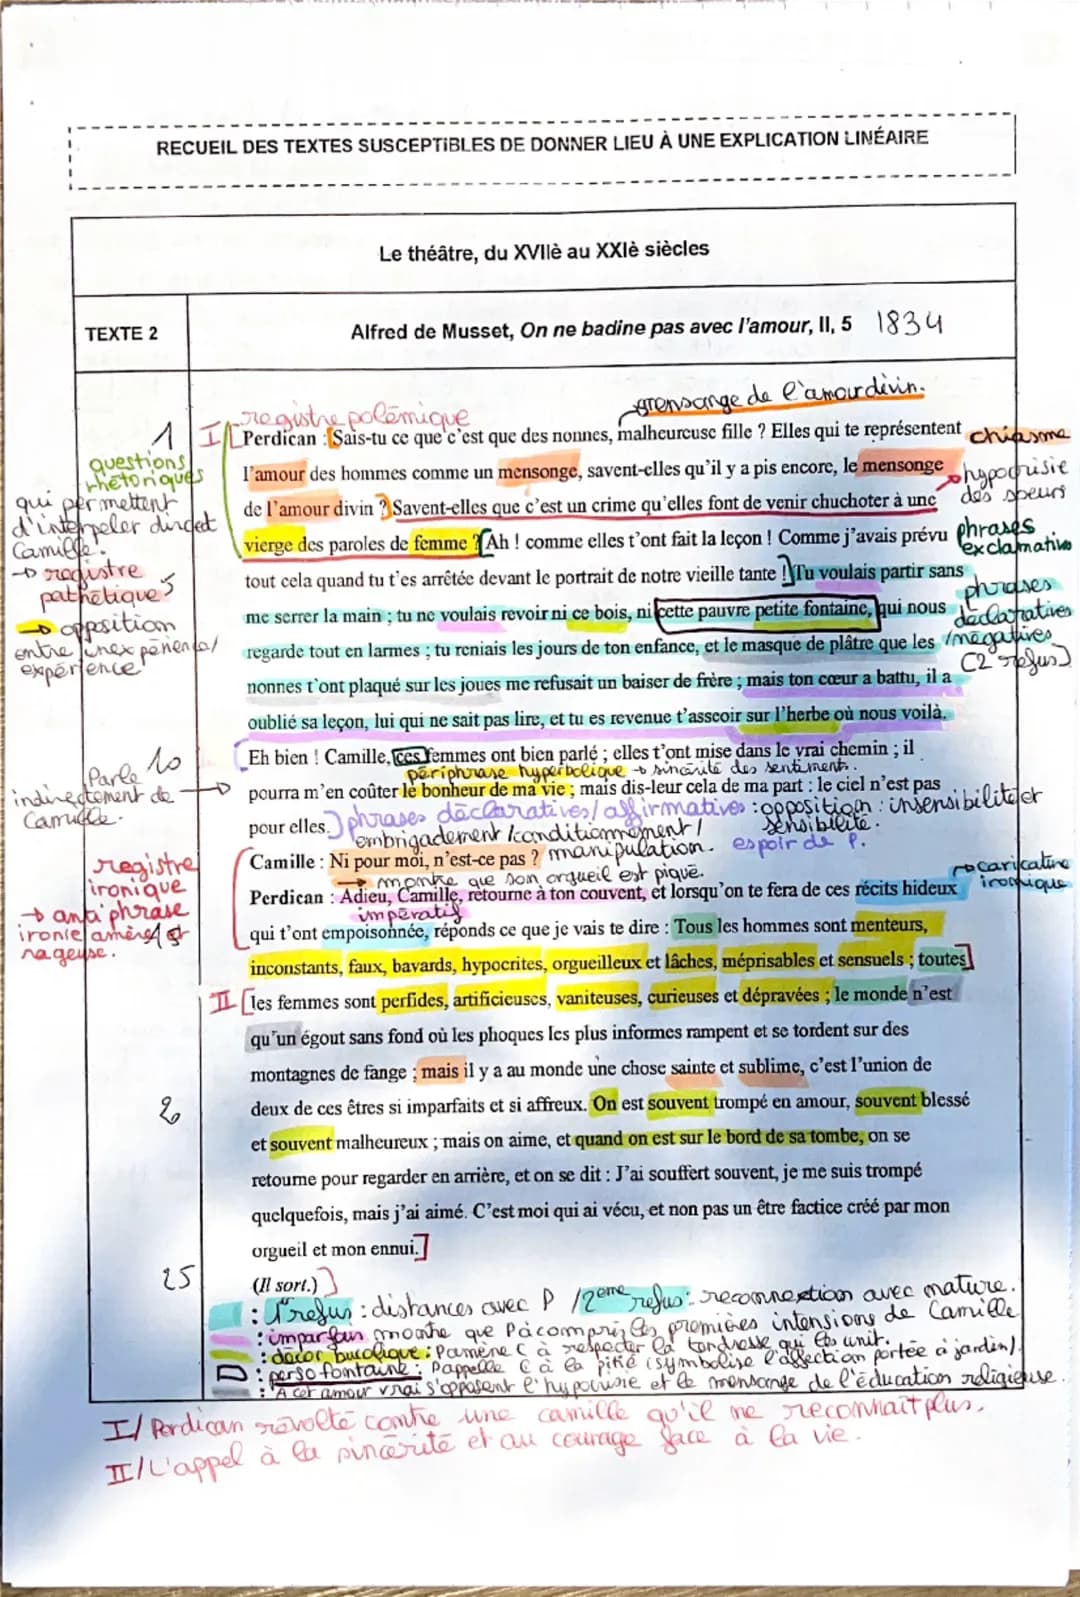 RECUEIL DES TEXTES SUSCEPTIBLES DE DONNER LIEU À UNE EXPLICATION LINÉAIRE
Le théâtre, du XVIIè au XXIè siècles
TEXTE 2
Alfred de Musset, On ne badine pas avec l'amour, II, 5 1834
registre polémique
mensonge de l'amour divin.
1
I
Perdican : Sais-tu ce que c'est que des nonnes, malheureuse fille ? Elles qui te représentent
chiasme
l'amour des hommes comme un mensonge, savent-elles qu'il y a pis encore, le mensonge
hypocrisie
des soeurs
de l'amour divin ? Savent-elles que c'est un crime qu'elles font de venir chuchoter à une
vierge des paroles de femme ? Ah ! comme elles t'ont fait la leçon ! Comme j'avais prévu
phrases
exclamatives
tout cela quand tu t'es arrêtée devant le portrait de notre vieille tante ! Tu voulais partir sans
me serrer la main ; tu ne voulais revoir ni ce bois, ni cette pauvre petite fontaine, qui nous
phrases
déclaratives
/négatives
(2 refus)
regarde tout en larmes ; tu reniais les jours de ton enfance, et le masque de plâtre que les
nonnes t'ont plaqué sur les joues me refusait un baiser de frère ; mais ton cœur a battu, il a
oublié sa leçon, lui qui ne sait pas lire, et tu es revenue t'asseoir sur l'herbe où nous voilà.
questions
rhétoriques
qui permettent
d'interpeler direct
Camille.
→ registre
pathétique
5
→ opposition
entre inexpérience/
expérience
Eh bien ! Camille, ces femmes ont bien parlé ; elles t'ont mise dans le vrai chemin ; il
périphrase hyperbolique → sincérité des sentiments.
pourra m'en coûter le bonheur de ma vie ; mais dis-leur cela de ma part : le ciel n'est pas
pour elles.
phrases déclaratives/affirmatives : opposition : insensibilité et
sensibilité.
embrigadement/conditionnement/
manipulation.
espoir de P.
10
Parle
indirectement de
Camille.
Camille : Ni pour moi, n'est-ce pas ?
→ montre que son orgueil est piqué.
Perdican : Adieu, Camille, retourne à ton couvent, et lorsqu'on te fera de ces récits hideux
→ caricature
ironique
impératif
qui t'ont empoisonnée, réponds ce que je vais te dire : Tous les hommes sont menteurs,
inconstants, faux, bavards, hypocrites, orgueilleux et lâches, méprisables et sensuels ; toutes
registre
ironique
→ antiphrase
ironie amère et
rageuse.
15
II
les femmes sont perfides, artificieuses, vaniteuses, curieuses et dépravées ; le monde n'est
qu'un égout sans fond où les phoques les plus informes rampent et se tordent sur des
montagnes de fange ; mais il y a au monde une chose sainte et sublime, c'est l'union de
20
deux de ces êtres si imparfaits et si affreux. On est souvent trompé en amour, souvent blessé
et souvent malheureux ; mais on aime, et quand on est sur le bord de sa tombe, on se
retourne pour regarder en arrière, et on se dit : J'ai souffert souvent, je me suis trompé
quelquefois, mais j'ai aimé. C'est moi qui ai vécu, et non pas un être factice créé par mon
orgueil et mon ennui.
25
(Il sort.)
: 1er refus : distances avec P / 2eme refus : reconnextion avec nature.
: imparfais montre que P a compris les premières intensions de Camille
: décor bucolique : P amène C à respecter la tendresse qui les unit.
: perso fontaine : P appelle C à la pitié (symbolise l'affection portée à jardin).
: A cet amour vrai s'opposent l'hypocrisie et le mensonge de l'éducation religieuse.
I/ Perdican révolté contre une camille qu'il ne reconnait plus.
II/ L'appel à la sincérité et au courage face à la vie.